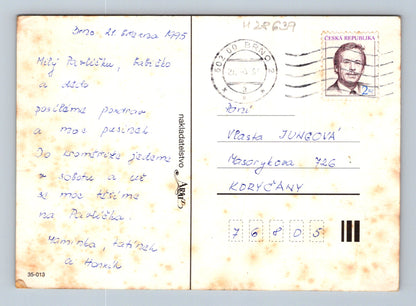 Brno, 21. března 1995
Milý Pavlíčku, babičko
a dědo
posíláme pozdrav
a moc pusinek
Do Kroměříže jedeme
v sobotu a už
se moc těšíme
na Pavlíčka.
Maminka, tatínek
a Honzík
35-013
nakladatelství
602 00 BRNO 2
ČESKÁ REPUBLIKA
Paní
Vlasta JUNGOVÁ
Masarykova 726
KORYČANY
76805